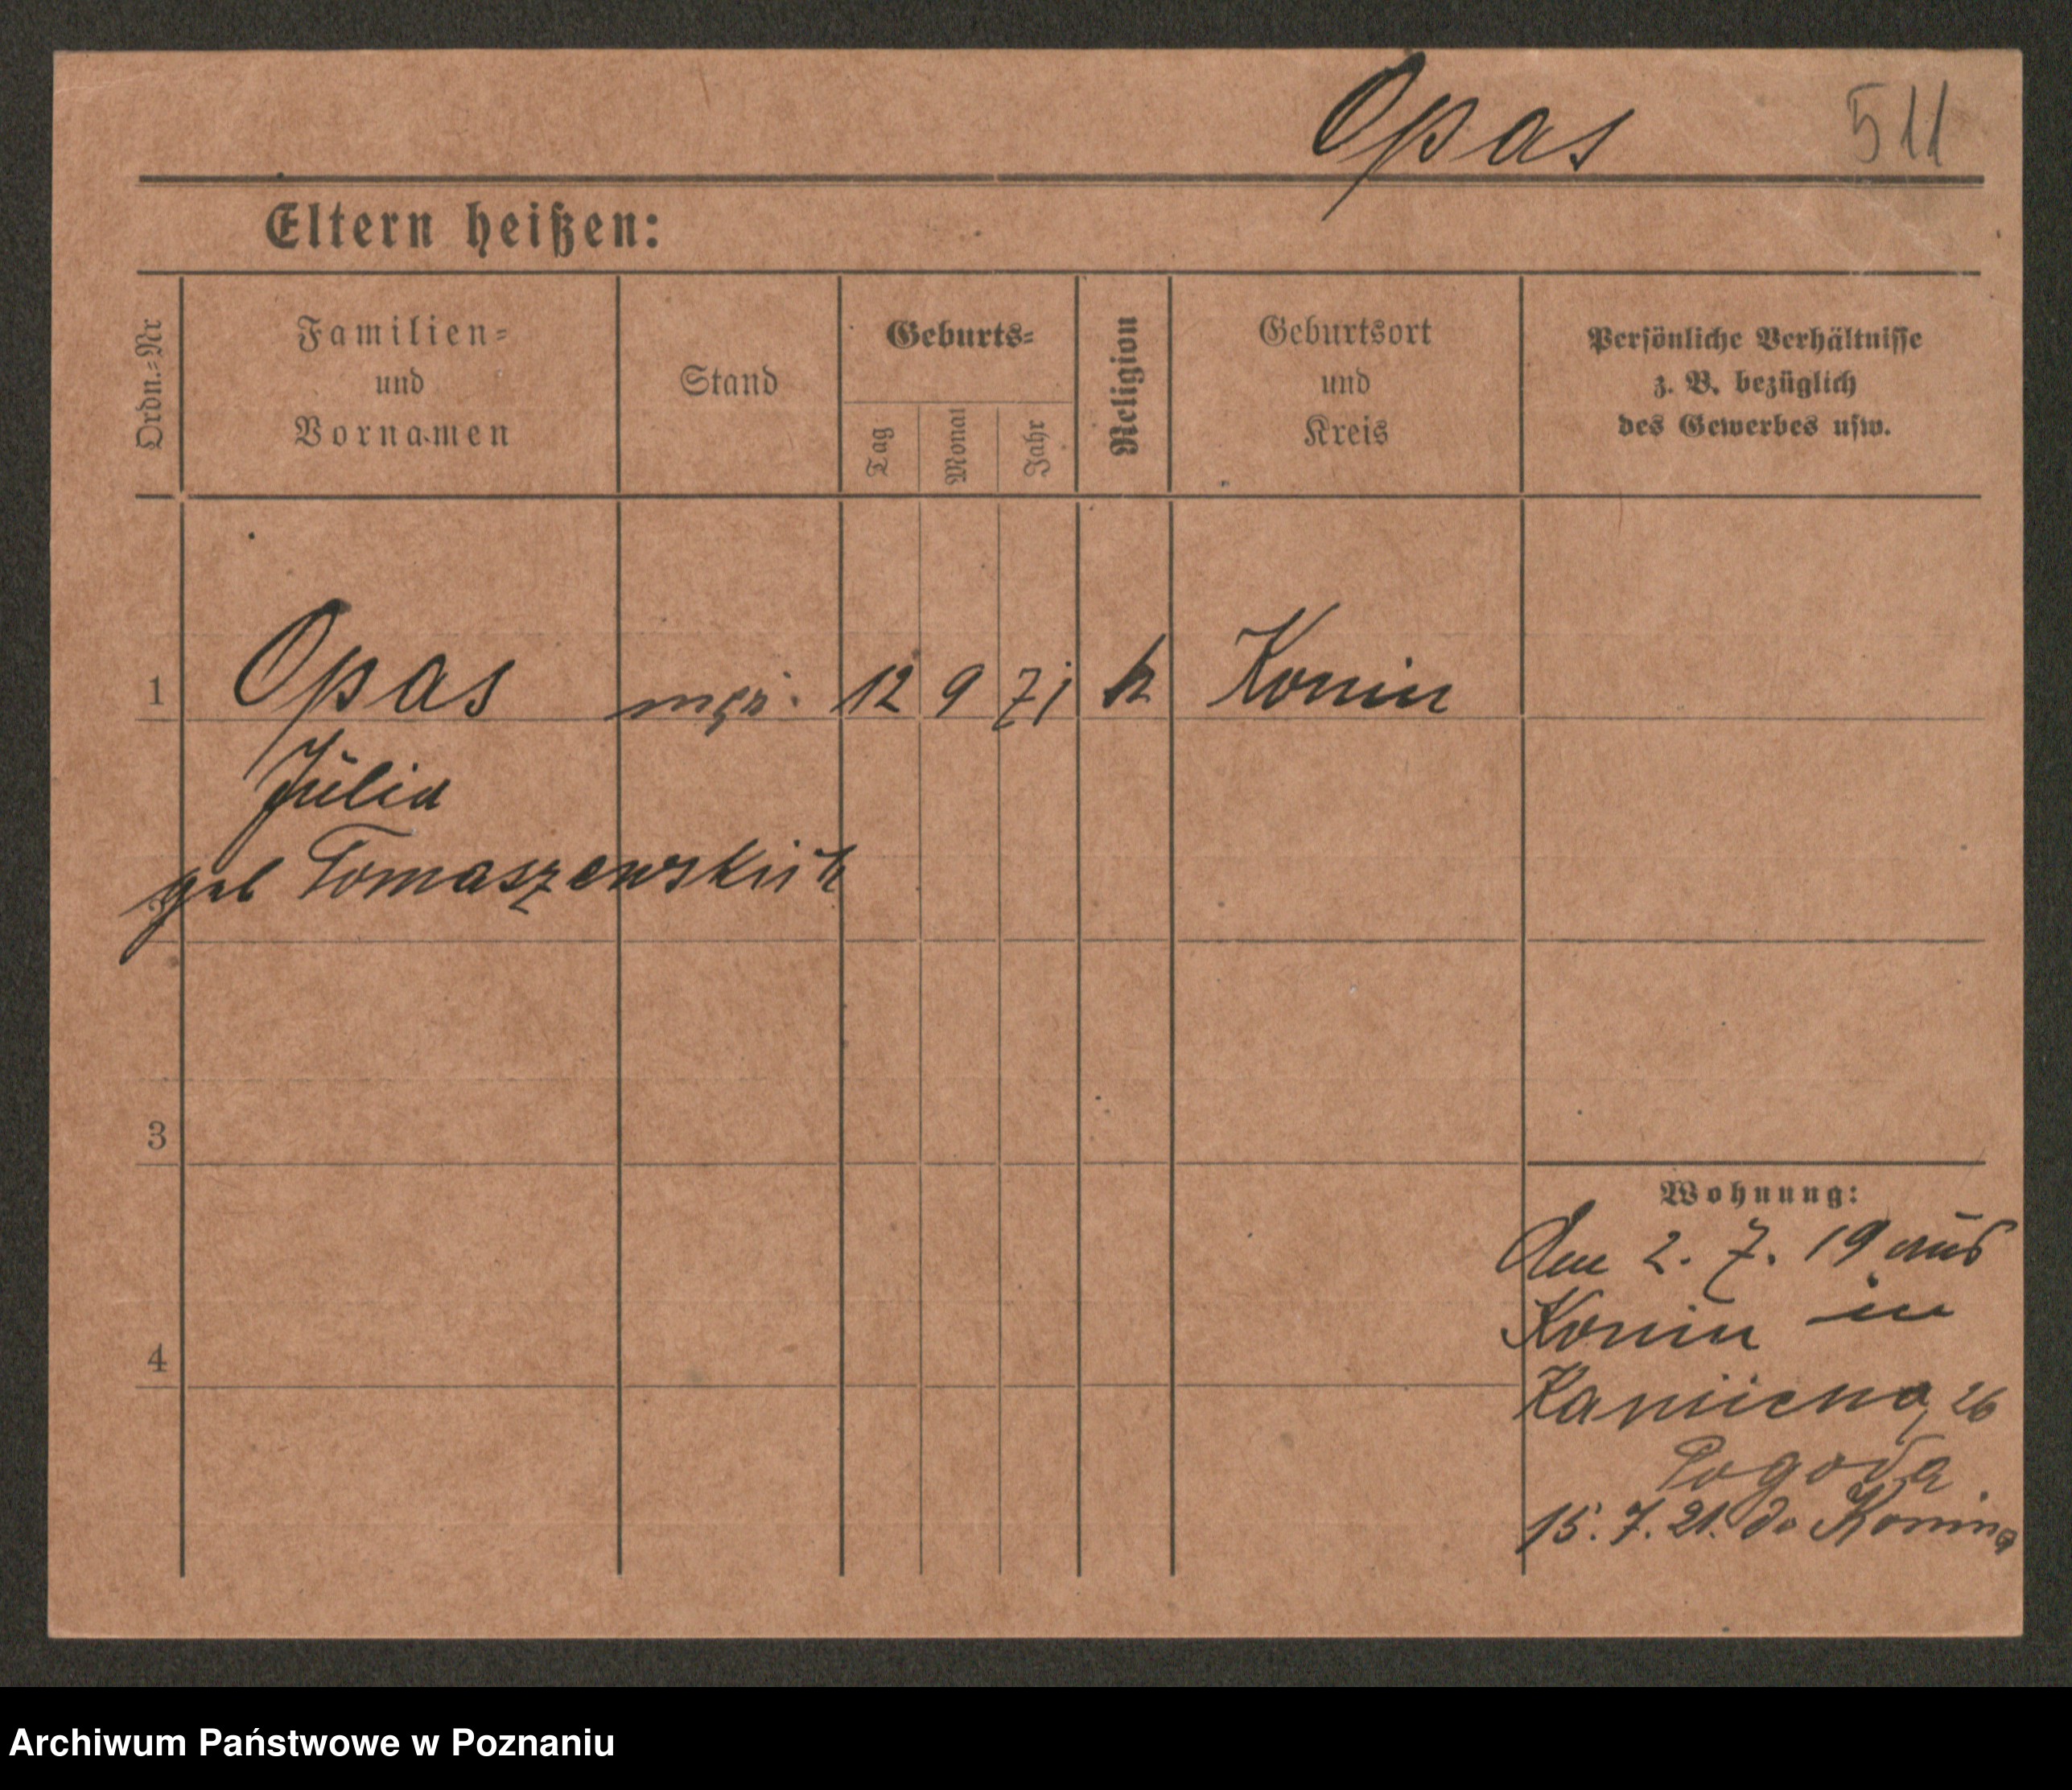 Opas 511
Eltern heißen:
Ordn.-Nr
Familien-
und
Vornamen
Stand
Geburts-
Tag
Monat
Jahr
Religion
Geburtsort
und
Kreis
Persönliche Verhältnisse
z. B. bezüglich
des Gewerbes usw.
1 Opas 12 9 71 k Konin
Julia
geb Tomaszewskich
3
4
Wohnung:
Am 2. 7. 19 aus
Konin in
26
Pogoda
15. 7. 21. do Konina
Archiwum Państwowe w Poznaniu